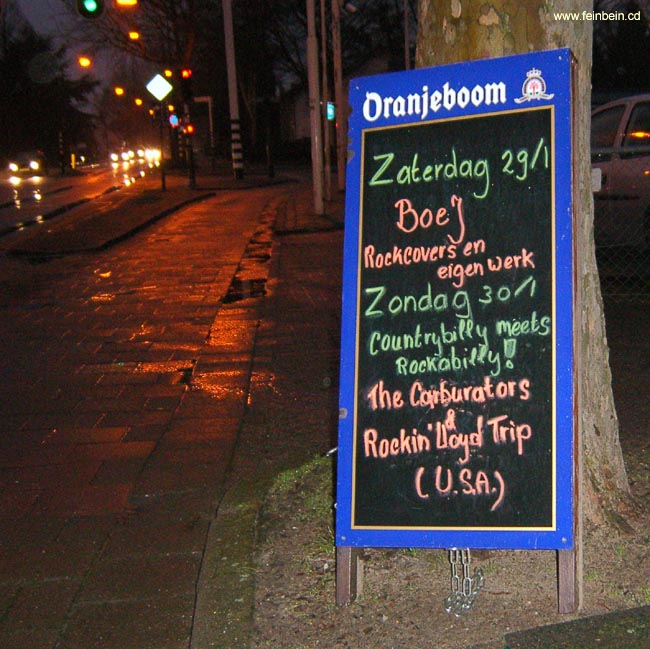 www.feinbein.cd
Oranjeboom
Zaterdag 29/1
Boej
Rockcovers en
eigen werk
Zondag 30/1
Countrybilly meets
Rockabilly!
The Carburators
&
Rockin' Lloyd Trip
(U.S.A.)